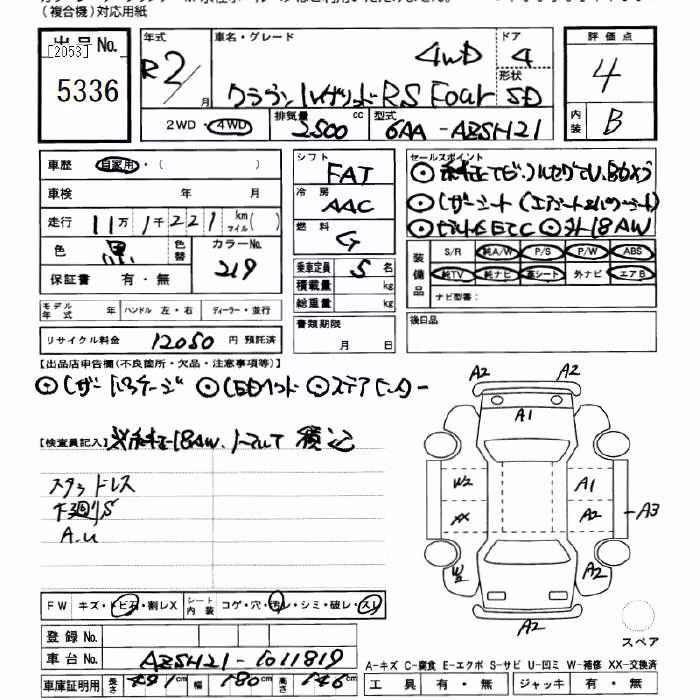 (複合機)対応用紙
出品No.
[2053]
5336
年式
R2/月
車名・グレード
4WD
クラウン ハイブリッド RS Four
ドア
4
形状
SD
評価点
4
内装
B
2WD・4WD
排気量
2500 cc
型式
6AA-AZSH21
車歴
自家用・( )
車検 年 月
走行 11万1千221 km マイル( )
色 黒 色替
カラーNo.
219
保証書 有・無
シフト
FAT
冷房
AAC
燃料
G
乗車定員 5 名
積載量 kg
総重量 kg
書類期限
月 日
セールスポイント
レザーシート(エアシート&パワーシート)
ビルトインETC 18AW
装備品
S/R 純A/W P/S P/W ABS
純TV 純ナビ 革シート 外ナビ エアB
ナビ型番:
後日品
モデル年式 年 ハンドル 左・右 ディーラー・並行
リサイクル料金 12050 円 預託済
【出品店申告欄(不良箇所・欠品・注意事項等)】
◎レザーパッケージ ◎LEDヘッド ◎ステアヒーター
【検査員記入】 純正18AW、トランク積込
スタッドレス
下廻りS
A.U
A2 A2
A1
W2 A1
XX A2 A3
W2 A2
A2
FW キズ・トビ石・割レX シート内装 コゲ・穴・汚レ・シミ・破レ・スレ
登録No.
車台No. AZSH21-6011819
車庫証明用 長さ 491 cm 幅 180 cm 高さ 146 cm
スペア
A-キズ C-腐食 E-エクボ S-サビ U-凹ミ W-補修 XX-交換済
工具 有・無 ジャッキ 有・無